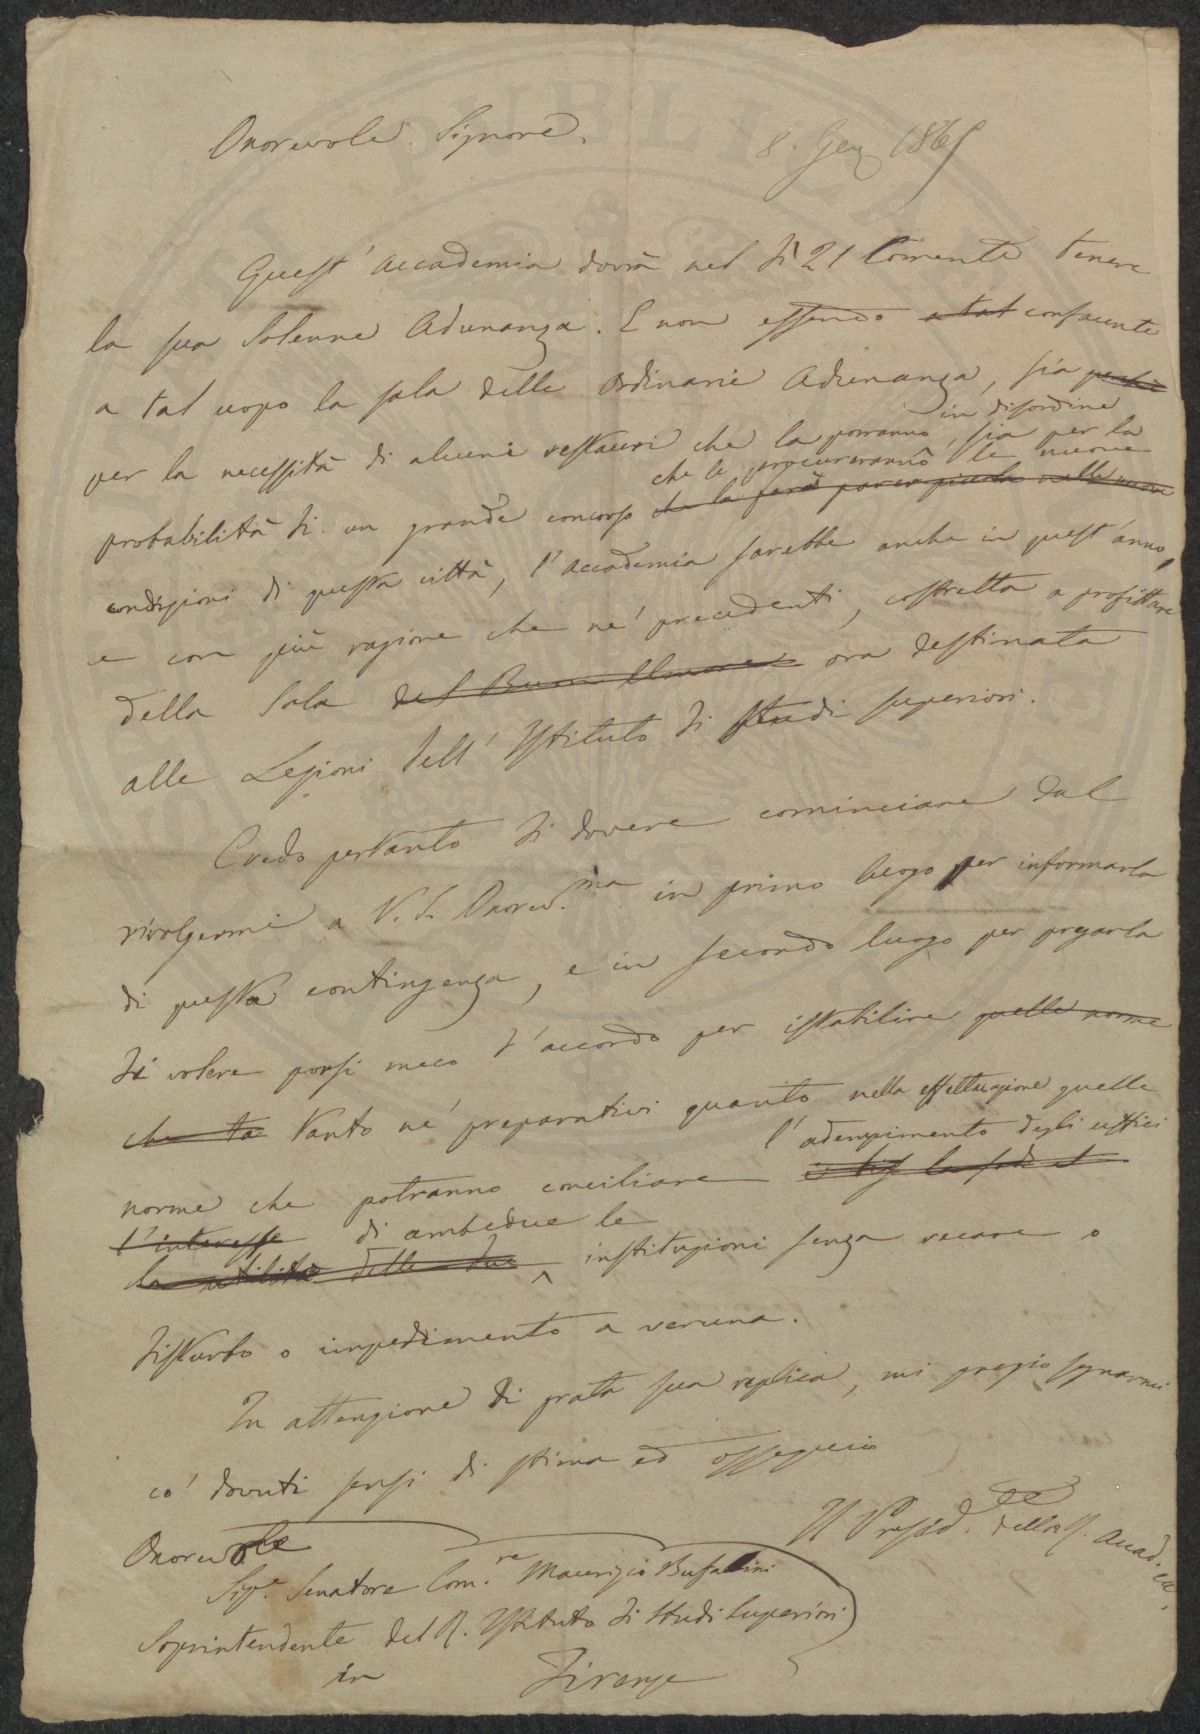 Onorevole Signore.
8. Gen 1865
Quest' Accademia dovrà nel dì 21 Corrente tenere
la sua Solenne Adunanza. E non essendo a tal confacente
a tal uopo la sala delle Ordinarie Adunanza, sia perchè
per la necessità di alcuni restauri che la porranno in disordine, sia per la
probabilità di un grande concorso che la farà parer piccola nelle nuove che le procureranno le nuove
condizioni di questa città, l'Accademia sarebbe anche in quest'anno,
e con più ragione che ne' precedenti, costretta a profittare
della Sala del Buon Umore ora destinata
alle Lezioni dell'Istituto di studi superiori.
Credo pertanto di dovere cominciare dal
rivolgermi a V. S. Onorev.ma in primo luogo per informarla
di questa contingenza, e in secondo luogo per pregarla
di volere porsi meco d'accordo per istabilire quelle norme
che ta tanto ne' preparativi quanto nella effettuazione quelle
norme che potranno conciliare l'adempimento degli uffici
l'interesse di ambedue le
la utilità delle due istituzioni senza recare o
disturbo o impedimento a veruna.
In attenzione di grata sua replica, mi pregio segnarmi
co' dovuti sensi di stima ed ossequio
Il Presid. della R. Accad.ia
Onorevole
Sig.e Senatore Com.re Maurizio Bufalini
Soprintendente del R. Istituto di Studi Superiori
in Firenze